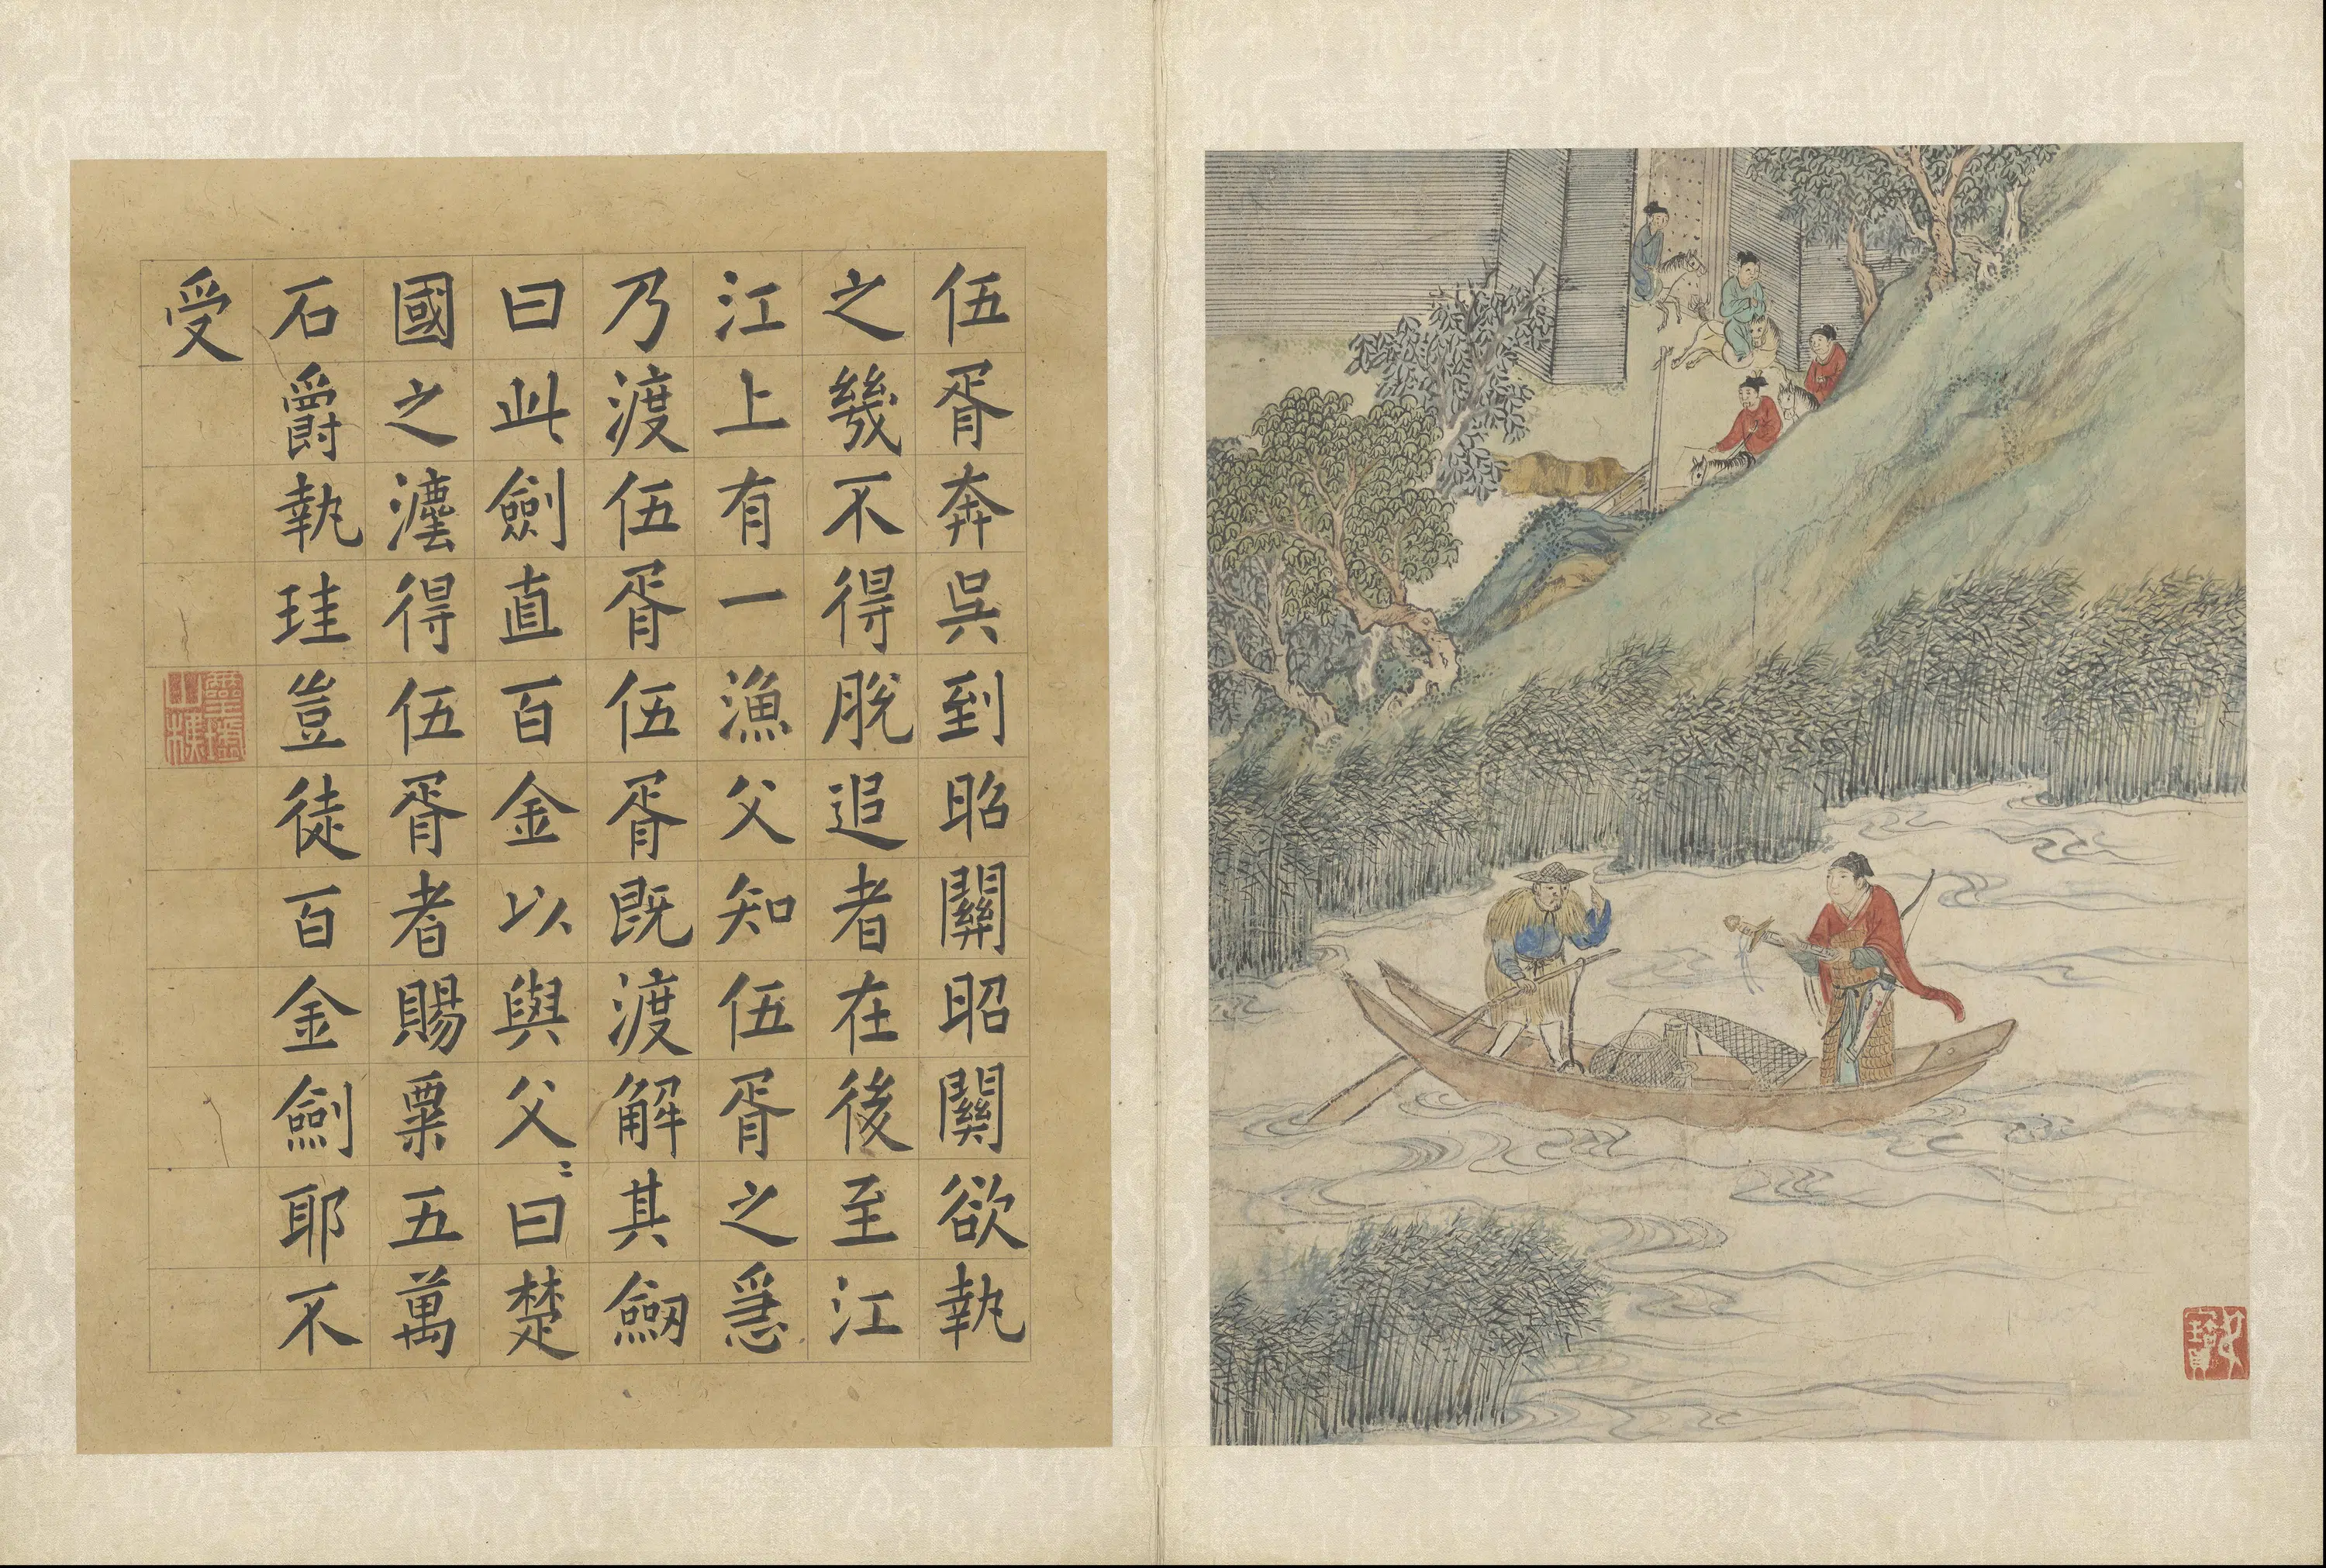 伍胥奔吳到昭關昭關欲執
之幾不得脫追者在後至江
江上有一漁父知伍胥之急
乃渡伍胥伍胥既渡解其劒
曰此劍直百金以與父〻曰楚
國之灋得伍胥者賜粟五萬
石爵執珪豈徒百金劍耶不
受